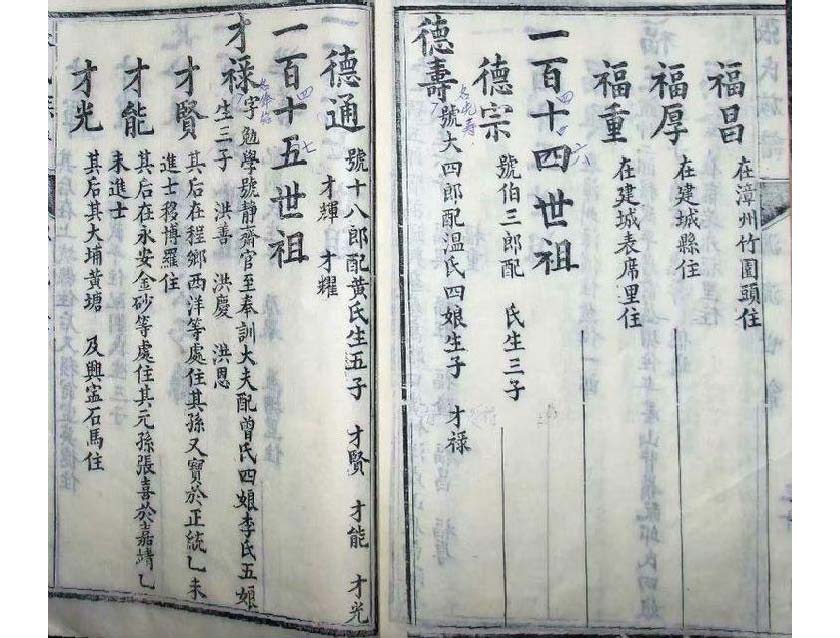 福昌 在漳州竹園頭住
福厚 在建城縣住
福重 在建城表席里住
一百十四世祖
四
六
德宗 號伯三郎配 氏生三子
德壽 號大四郎配温氏四娘生子 才禄
德通 號十八郎配黃氏生五子 才賢 才能 才光
才輝 才耀
一百十五世祖
四
七
才祿 字勉學號靜齋官至奉訓大夫配曾氏四娘李氏五娘
生三子 洪善 洪慶 洪恩
才賢 其后在程鄉西洋等處住其孫又寶於正統乙未
進士移博羅住
才能 其后在永安金砂等處住其元孫張喜於嘉靖乙
未進士
才光 其后其大埔黃塘 及興寍石馬住
張氏族譜